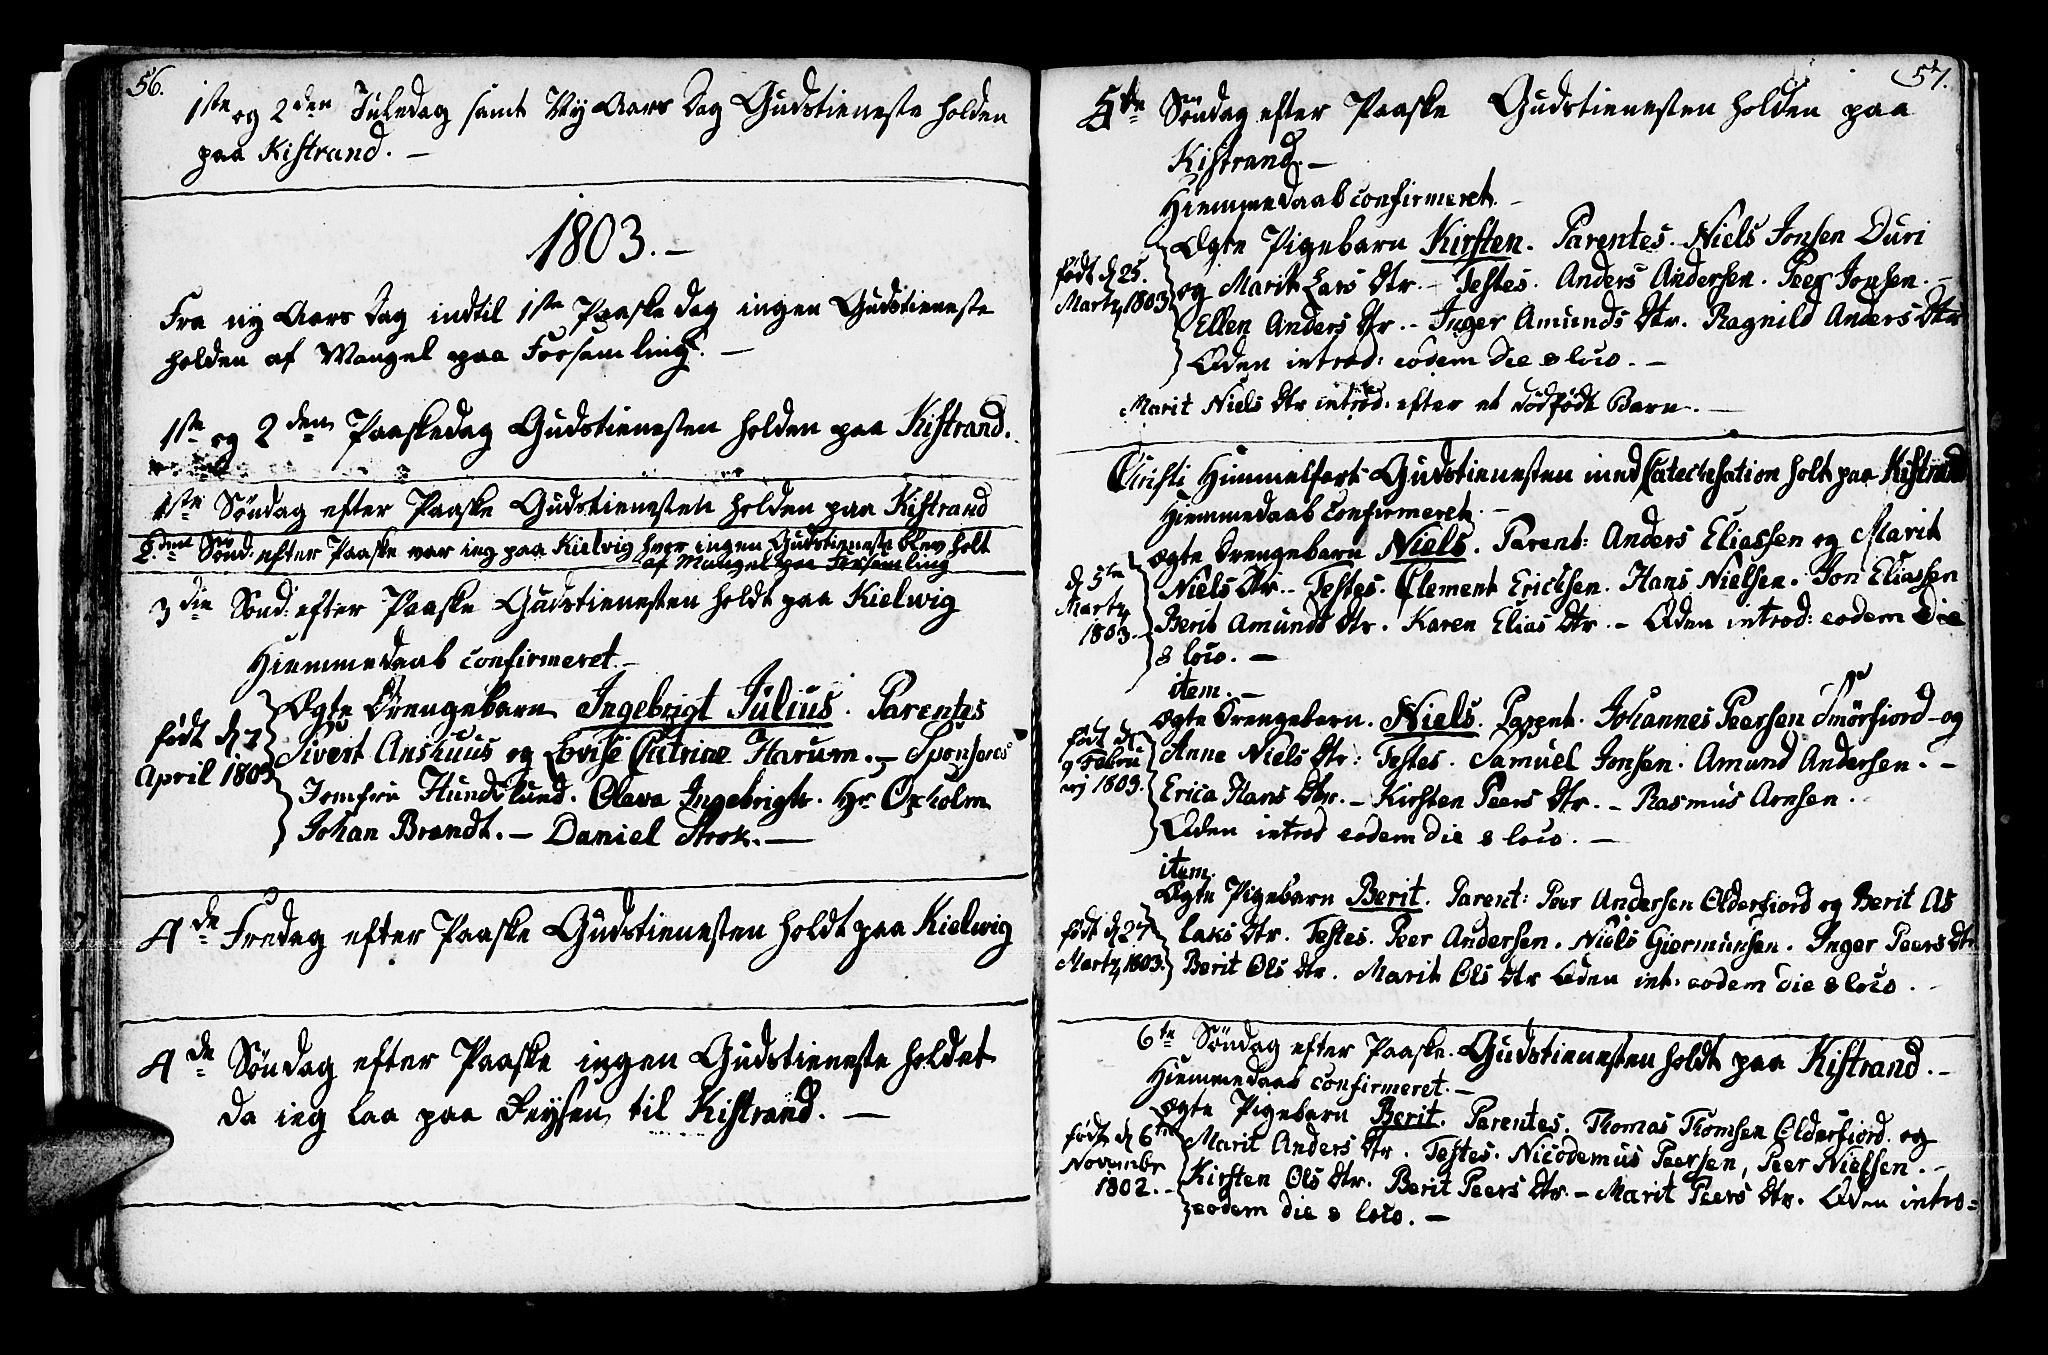 56.
1ste og 2den Juledag samt Ny Aars Dag Gudstieneste holden
paa Kistrand. —
1803. —
Fra ny Aars Dag indtil 1ste Paaske dag ingen Gudstieneste
holden af Mangel paa Forsamling. —
1ste og 2den Paaskedag Gudstienesten holden paa Kistrand.
1ste Søndag efter Paaske Gudstienesten holden paa Kistrand
2den Sønd: efter Paaske var ieg paa Kielvig hvor ingen Gudstieneste blev holt
af Mangel paa Forsamling
3die Sønd: efter Paaske Gudstienesten holdt paa Kielwig
Hiemmedaab confirmeret. —
født d 7
April 1803
Ægte Drengebarn Ingebrigt Julius. Parentes
Sivert Anshuus og Lovise Catrine Harum. — Sponsores
Jomfru Hundslund. Oleva Ingebrigtr. Hr Oxholm
Johan Brandt. — Daniel Strok. —
4de Fredag efter Paaske Gudstienesten holdt paa Kielwig
4de Søndag efter Paaske ingen Gudstieneste holdet
da ieg laa paa Reysen til Kistrand. —
57.
5te Søndag efter Paaske Gudstienesten holden paa
Kistrand. —
Hiemmedaab confirmeret. —
født d 25.
Marty 1803
Ægte Pigebarn Kirsten. Parentes. Niels Jonsen Duri
og Marit Lars Dtr. — Testes. Anders Andersen. Peer Jonsen. —
Ellen Anders Dtr. — Inger Amunds Dtr. Ragnild Anders Dtr
Qden introd: eodem die & loco. —
Marit Niels Dtr introd: efter et dødfødt Barn. —
Christi Himmelfart Gudstienesten med Catechesation holt paa Kistrand
Hiemmedaab confirmeret. —
d 5te
Marty
1803.
Ægte Drengebarn Niels. Parent: Anders Eliassen og Marit
Niels Dtr. — Testes. Clement Erichsen. Hans Nielsen. Jon Eliassen
Berit Amunds Dtr. Karen Elias Dtr. — Qden introd: eodem die
& loco. —
item. —
født d
9 Febru
arj 1803.
Ægte Drengebarn. Niels. Parent. Johannes Peersen Smørfiord og
Anne Niels Dtr: Testes. Samuel Jonsen. Amund Andersen. —
Erica Hans Dtr. — Kirsten Peers Dtr. — Rasmus Arnsen.
Qden introd eodem die & loco. —
item.
født d 27
Marty 1803.
Ægte Pigebarn Berit. Parent: Peer Andersen Olderfiord og Berit As
laks Dtr. Testes. Peer Andersen. Niels Giermunsen. Inger Peers Dtr
Berit Ols Dtr. Marit Ols Dtr Qden int: eodem die & loco.
6te Søndag efter Paaske. Gudstienesten holdt paa Kistrand. —
Hiemmedaab confirmeret. —
født d 6te
Novembr
1802. —
Ægte Pigebarn Berit. Parentes. Thomas Thomsen Olderfiord. og
Marit Anders Dtr. Testes. Nicodemus Peersen, Peer Nielsen. —
Kirsten Ols Dtr. Berit Peers Dtr — Marit Peers Dtr. Qden intro=
eodem die & loco. —